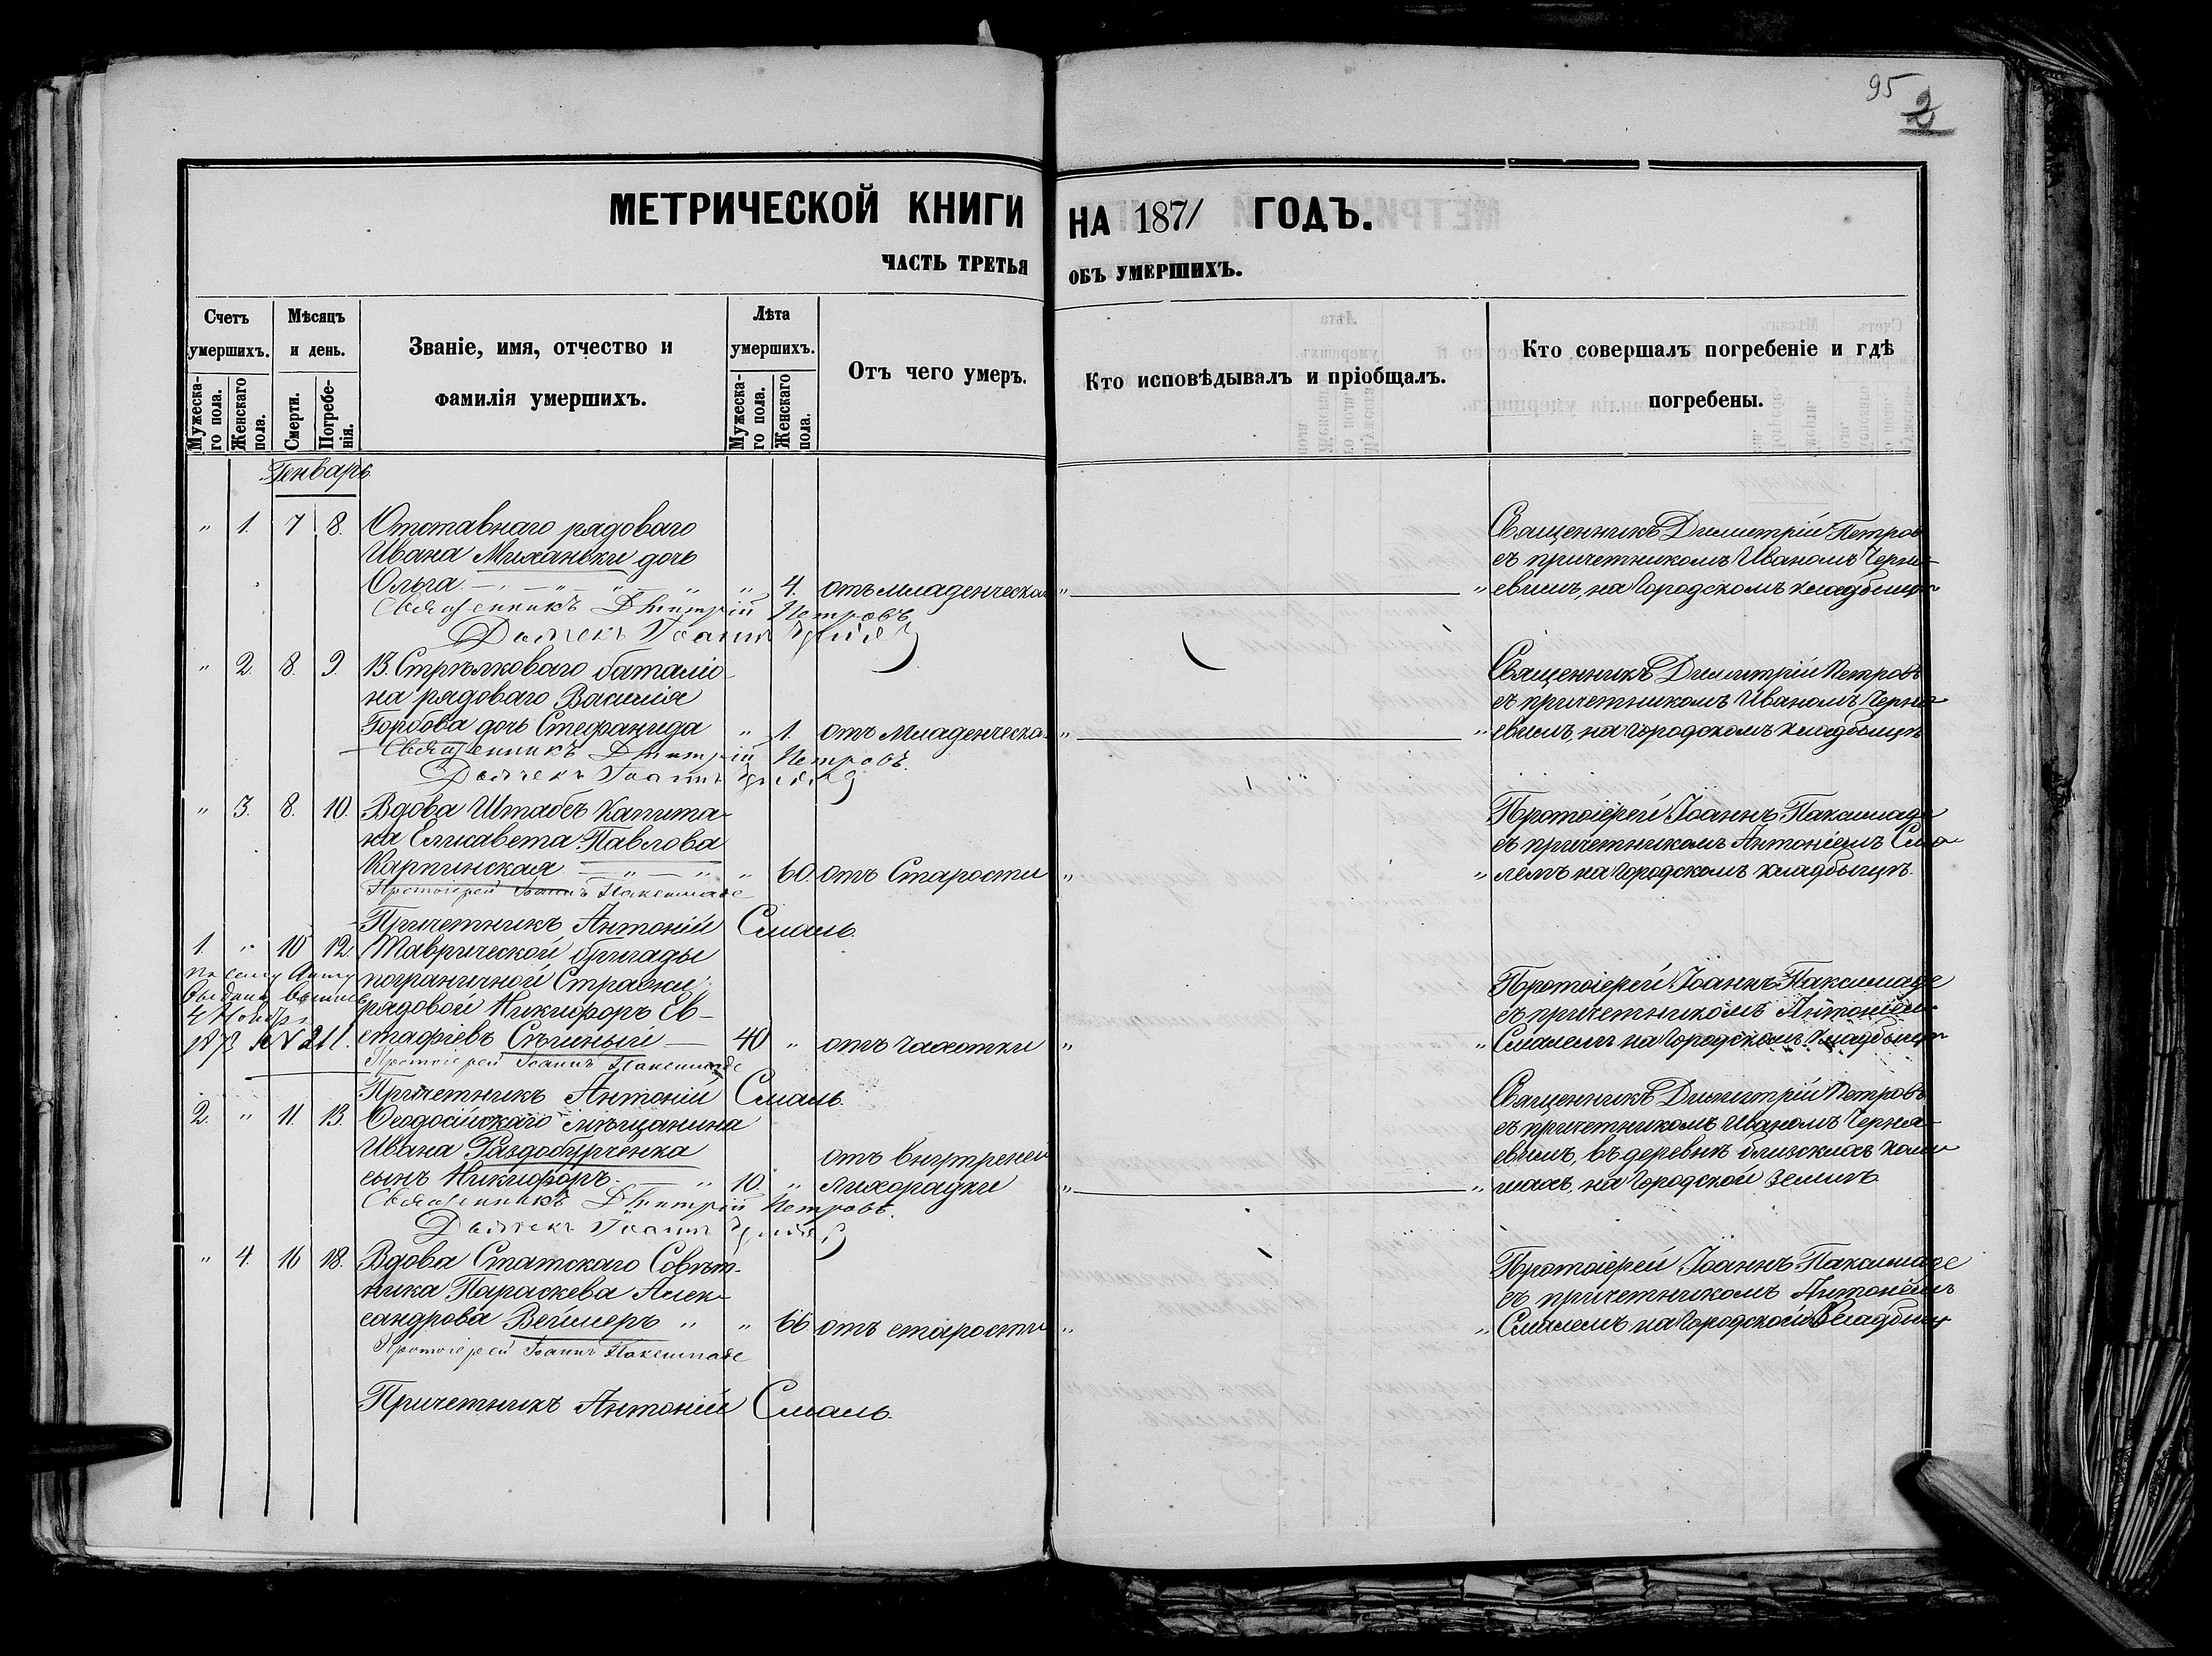 95
2
МЕТРИЧЕСКОЙ КНИГИ НА 1871 ГОДЪ.
ЧАСТЬ ТРЕТЬЯ ОБЪ УМЕРШИХЪ.
Счетъ умершихъ.
Мужеска-го пола.
Женскаго пола.
Мѣсяцъ и день.
Смерти.
Погребе-нія.
Званіе, имя, отчество и фамилія умершихъ.
Лѣта умершихъ.
Мужеска-го пола.
Женскаго пола.
Отъ чего умеръ.
Кто исповѣдывалъ и пріобщалъ.
Кто совершалъ погребеніе и гдѣ погребены.
Генварь
" 1. 7 8. Отставнаго рядоваго
Ивана Миханьки дочь
Ольга " 4. отъ младенческа " "
Священникъ Дмитрій Петровъ
Дьячекъ Іоаннъ
Священникъ Димитрій Петров
съ причетникомъ Иваномъ Черня-
евымъ, на Городскомъ кладбищѣ
" 2. 8. 9. 13. Стрѣлковаго баталіо-
на рядоваго Василія
Горбова дочь Стефанида " 1. отъ Младенческа. " "
Священникъ Дмитрій Петровъ.
Дьячекъ Іоаннъ
Священникъ Димитрій Петровъ
съ причетникомъ Иваномъ Черня-
евымъ, на Городскомъ кладбищѣ
" 3. 8. 10. Вдова Штабсъ Капита-
на Елисавета Павлова
Карпинская " 60. отъ Старости " "
Протоіерей Іоаннъ Паксимаде
Причетникъ Антоній Смаль.
Протоіерей Іоаннъ Паксимаде
съ причетникомъ Антоніемъ Сма-
лемъ на Городскомъ кладбищѣ.
1. " 10 12. Таврической бригады
пограничной Стражи
рядовой Никифоръ Ев-
стафіевъ 40 " отъ чахотки " "
По сему Акту
4 Ноября
187 № 211.
Протоіерей Іоаннъ Паксимаде
Причетникъ Антоній Смаль.
Протоіерей Іоаннъ Паксимаде
съ причетникомъ Антоніем
Смалемъ на Городскомъ кладбищѣ
2. " 11. 13. Ѳеодосійскаго мѣщанина
Ивана Раздобурченка
сынъ Никифоръ. " 10. " отъ внутреней
лихорадки " "
Священникъ Дмитрій Петровъ.
Дьячекъ Іоаннъ
Священникъ Димитрій Петровъ
съ причетникомъ Иваномъ Черня-
евымъ, въ деревнѣ
на Городской землѣ
" 4. 16 18. Вдова Статскаго Совѣт-
ника Параскева Алек-
сандрова Веймеръ " " 66 отъ старости " "
Протоіерей Іоаннъ Паксимаде
Причетникъ Антоній Смаль.
Протоіерей Іоаннъ Паксимаде
съ причетникомъ Антоніемъ
Смалемъ на Городской Кладбищ